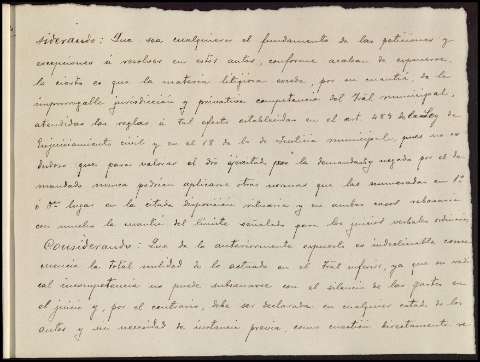 siderando: Que sea cualquiera el fundamento de las peticiones y
excepciones á resolver en estos autos, conforme acaban de exponerse,
lo cierto es que la materia litigiosa excede, por su cuantía, de la
improrrogable jurisdicción y privativa competencia del Tral municipal,
atendidas las reglas á tal efecto establecidas en el art. 489 de la Ley de
Enjuiciamiento civil y en el 18 de la de Justicia municipal, pues no es
dudoso que para valorar el dro ejercitado por la demandante y negado por el de
mandado nunca podrían aplicarse otras normas que las enumeradas en 1º
ó lugar en la citada disposición rituaria y en ambos casos rebasaría
con mucho la cuantía del límite señalado para los juicios verbales
Considerando: Que de lo anteriormente expuesto es indeclinable conse
cuencia la total nulidad de lo actuado en el Tral inferior, ya que su radi
cal incompetencia no puede subsanarse con el silencio de las partes en
el juicio y, por el contrario, debe ser declarada en cualquier estado de los
autos y sin necesidad de instancia previa, como cuestión directamente re